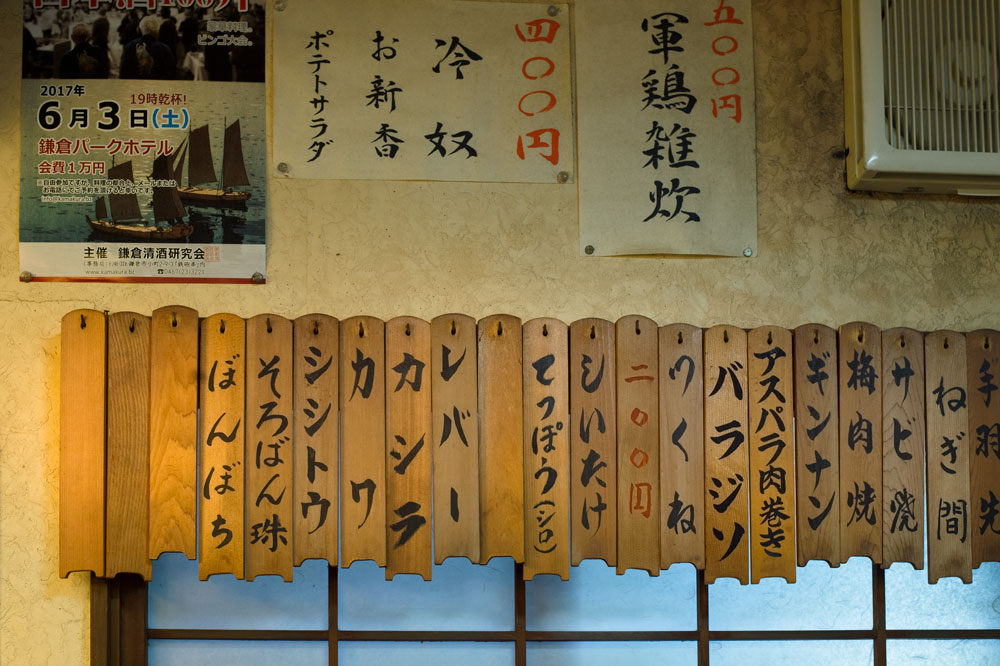 豪華料理。
ビンゴ大会。
2017年
19時乾杯!
6月3日(土)
鎌倉パークホテル
会費1万円
info@kamakura.bz
主催 鎌倉清酒研究会
www.kamakura.bz
五〇〇円
軍鶏雑炊
四〇〇円
冷奴
お新香
ポテトサラダ
手羽先
ねぎ間
サビ焼
梅肉焼
ギンナン
アスパラ肉巻き
バラジソ
つくね
二〇〇円
しいたけ
てっぽう(シロ)
レバー
カシラ
カワ
シシトウ
そろばん珠
ぼんぼち